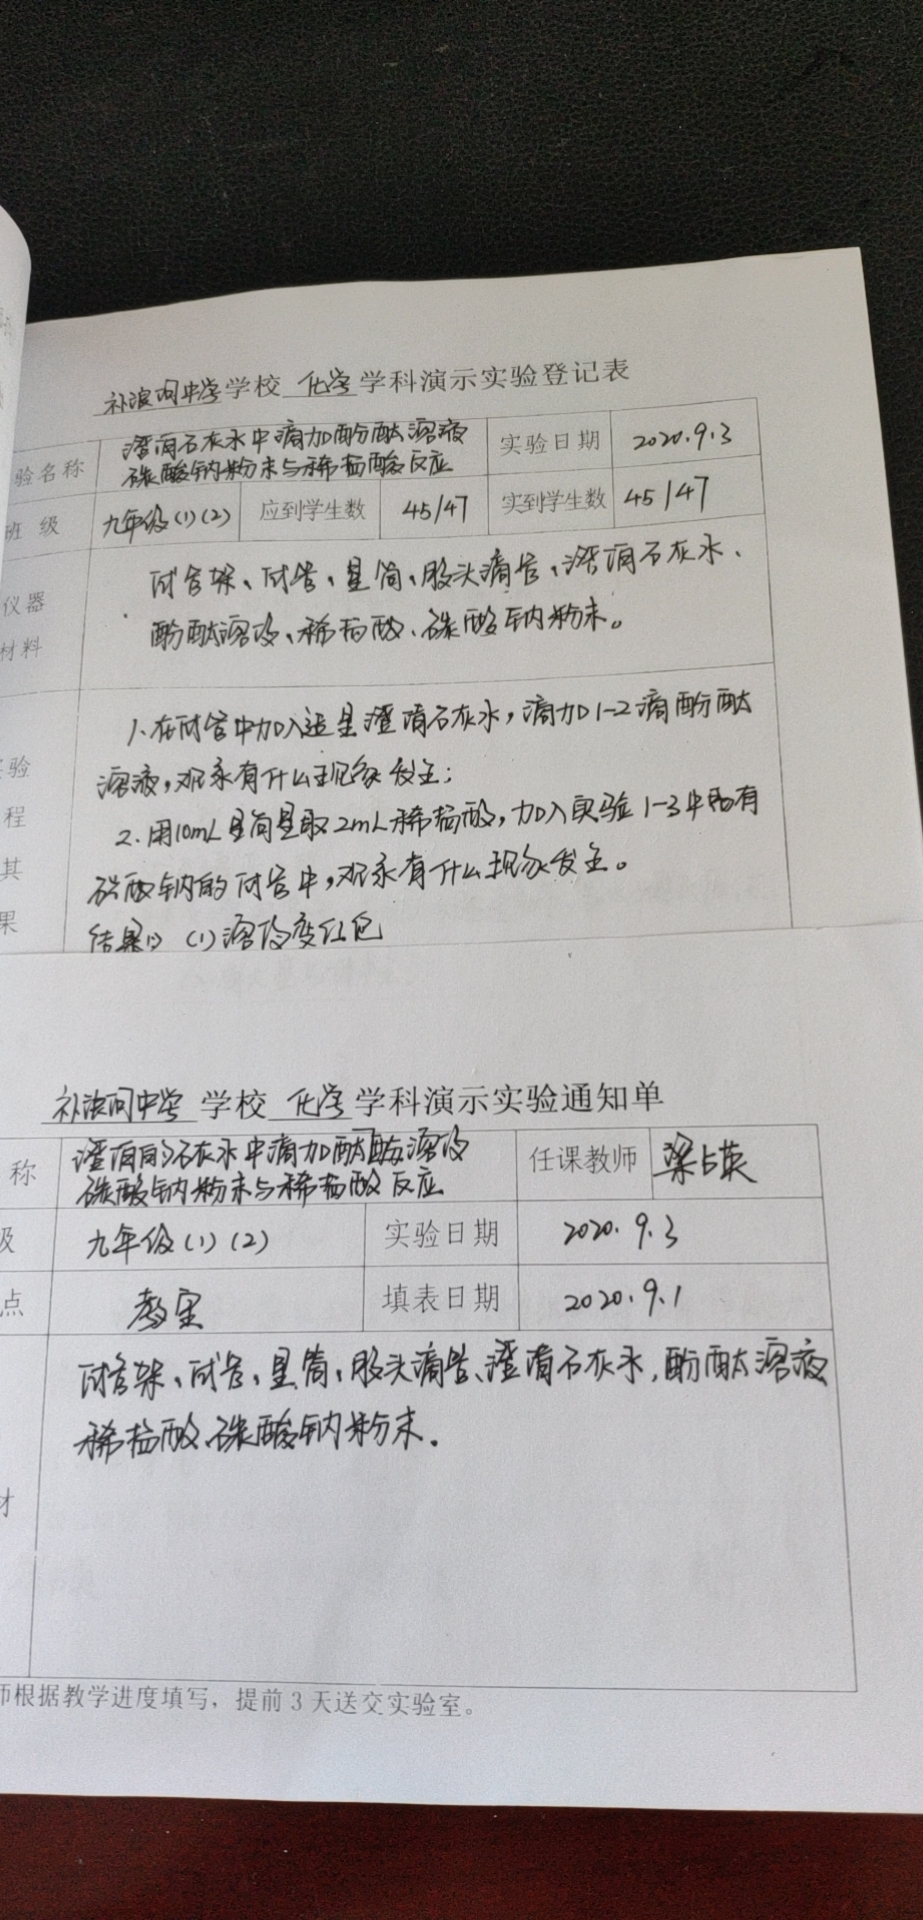 补浪河中学学校 化学学科演示实验登记表
验名称 澄清石灰水中滴加酚酞溶液 实验日期 2020.9.3
碳酸钠粉末与稀盐酸反应
班级 九年级(1)(2) 应到学生数 45/47 实到学生数 45/47
仪器 试管架、试管、量筒、胶头滴管、澄清石灰水、
材料 酚酞溶液、稀盐酸、碳酸钠粉末。
1、在试管中加入适量澄清石灰水，滴加1-2滴酚酞
验 溶液，观察有什么现象发生；
程 2、用10mL量筒量取2mL稀盐酸，加入实验1-3中盛有
其 碳酸钠的试管中，观察有什么现象发生。
果 结果：(1)溶液变红色
补浪河中学 学校 化学 学科演示实验通知单
称 澄清的石灰水中滴加酚酞溶液 任课教师 梁占英
碳酸钠粉末与稀盐酸反应
级 九年级(1)(2) 实验日期 2020.9.3
点 教室 填表日期 2020.9.1
试管架、试管、量筒、胶头滴管、澄清石灰水，酚酞溶液
稀盐酸、碳酸钠粉末.
材
师根据教学进度填写，提前3天送交实验室。